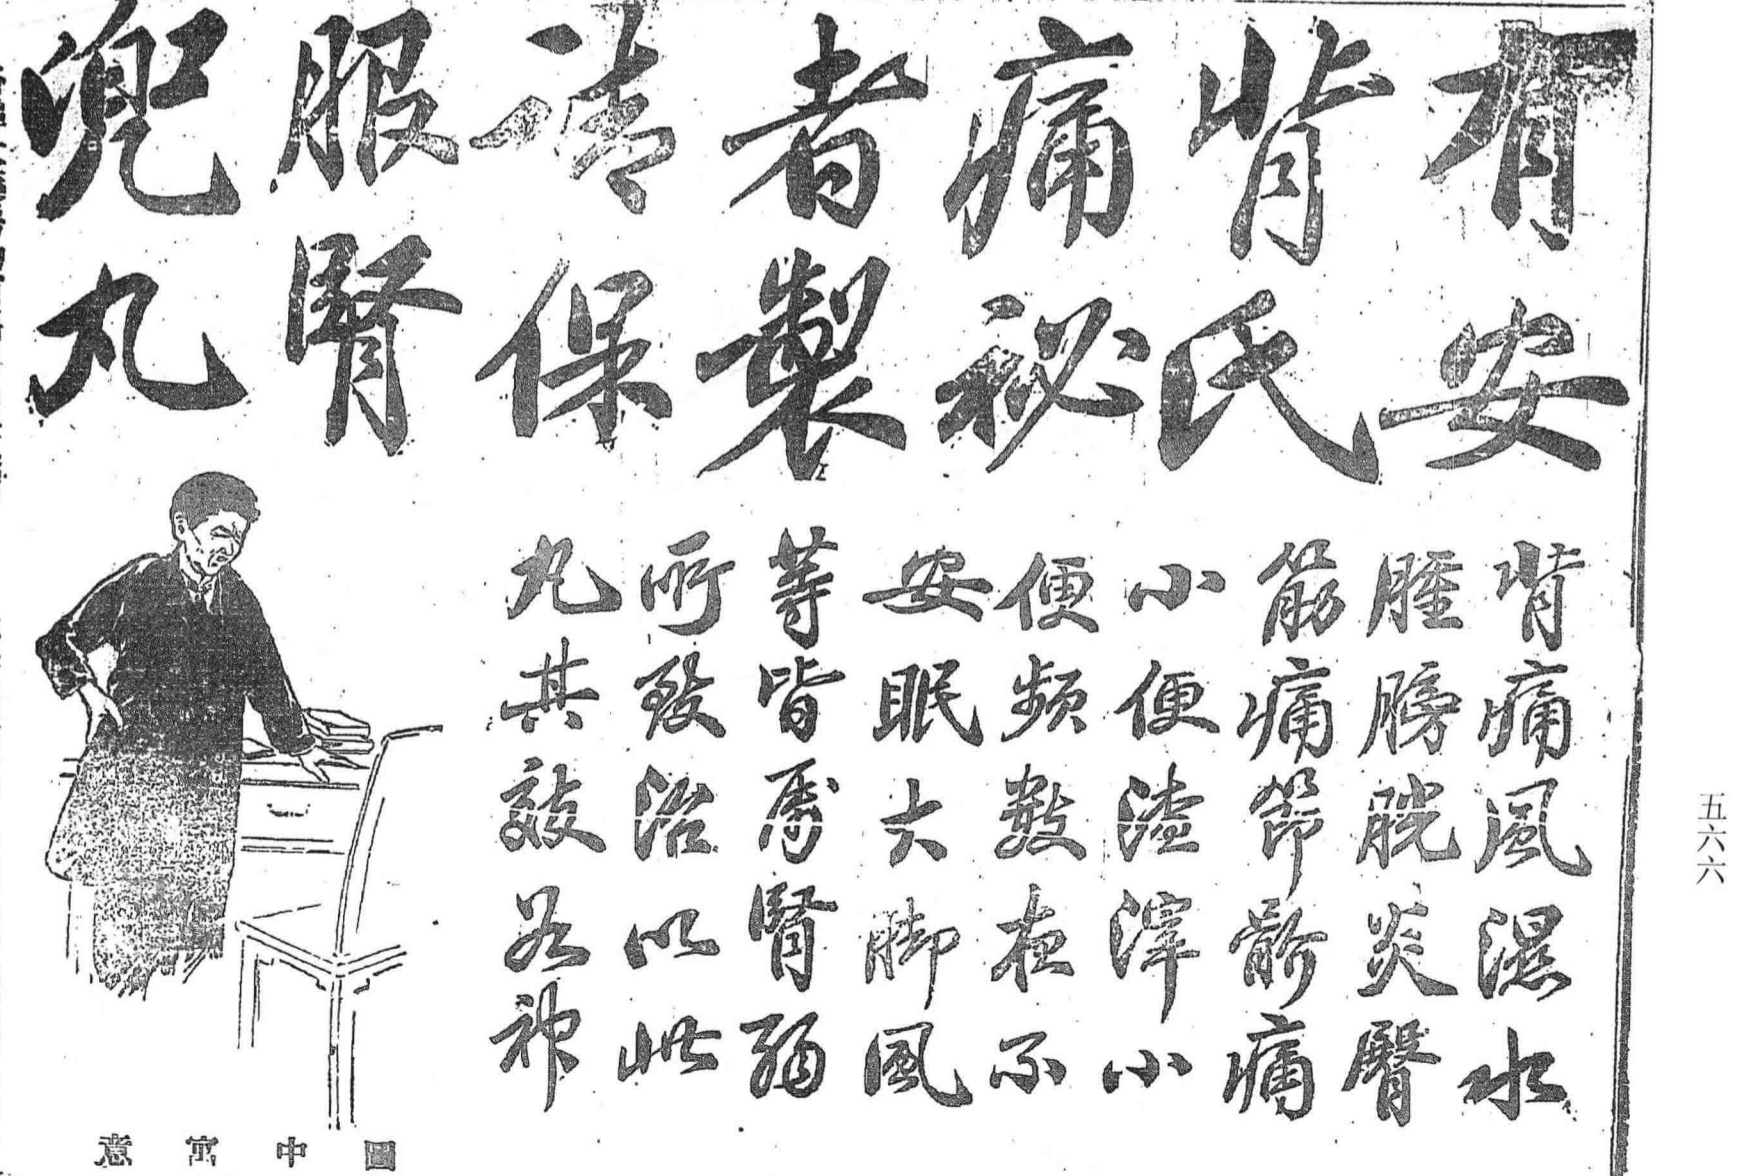 有背痛者請服兜
安氏祕製保腎丸
背痛風濕水
腫膀胱炎臀
筋痛節骱痛
小便澁滓小
便頻數夜不
安眠大脚風
等皆爲腎弱
所致治以此
丸其效若神
圖中寓意
五六六